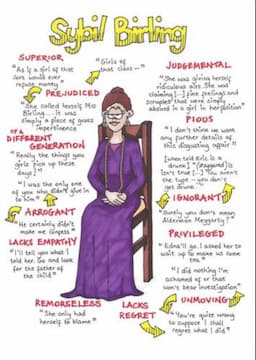 Sybil Birling
SUPERIOR
"As if a girl of that
sort would ever
refuse money"
"Girls of
that class—"
PREJUDICED
"She called herself Mrs
Birling... it was
simply a piece of gross
impertinence
OF A
DIFFERENT
GENERATION
"Really the things you
girls pick up these
days!"
"I was the only one
of you who didn't give in
to him"
ARROGANT
"He certainly didn't
make me confess"
LACKS EMPATHY
"I'll tell you what I
told her. Go and look
for the father of
the child"
REMORSELESS
"She only had
herself to blame"
JUDGEMENTAL
"She was giving herself
ridiculous airs. She was
claiming [...] fine feelings and
scruples that were simply
absurd in a girl in her position"
PIOUS
"I don't think we want
any further details of
this disgusting affair"
[when told Eric is a
drunk] "(staggered) It
isn't true [...] You aren't
the type - you don't
get drunk"
IGNORANT
"Surely you don't mean
Alderman Meggarty?"
PRIVILEGED
"Edna'll go. I asked her to
wait up to make us some
tea"
"I did nothing I'm
ashamed of or that
won't bear investigation"
UNMOVING
LACKS
REGRET
"You're quite wrong
to suppose I shall
regret what I did"